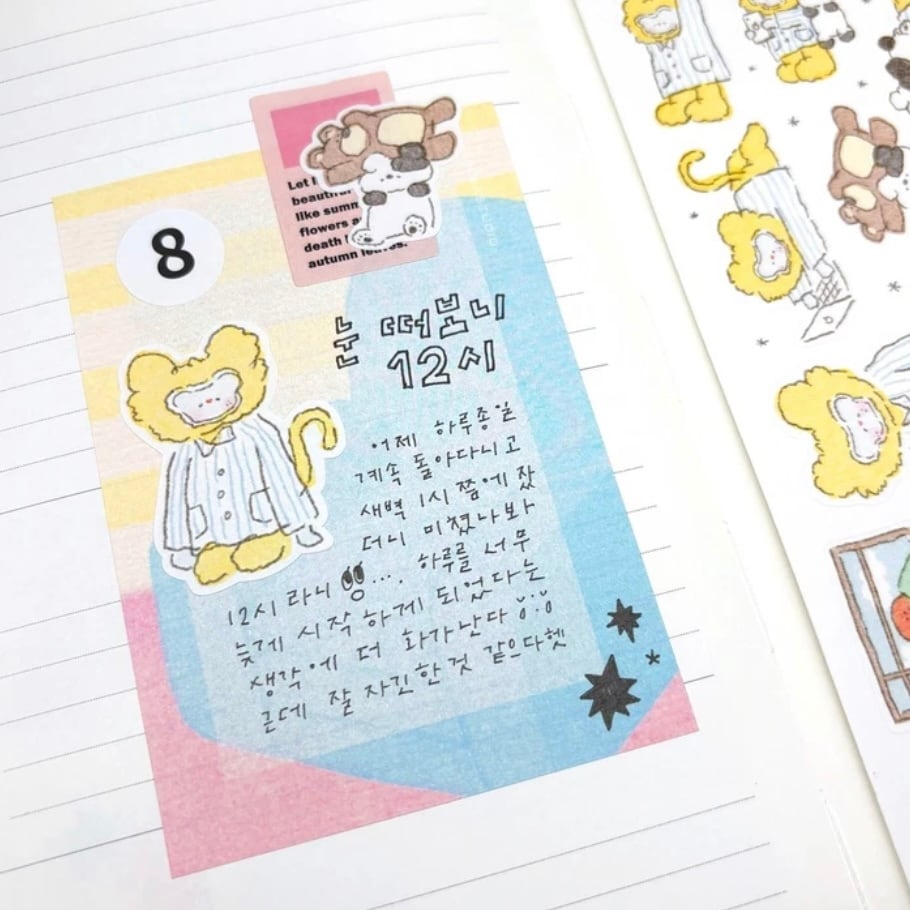 8
Let
beautiful
like summ
flowers a
death
autumn leaves.
눈 떠보니
12시
어제 하루종일
계속 돌아다니고
새벽 1시 쯤에 잤
더니 미쳤나봐
12시 라니 .... 하루를 너무
늦게 시작 하게 되었다는
생각에 더 화가난다
근데 잘 자긴한것 같으다헷